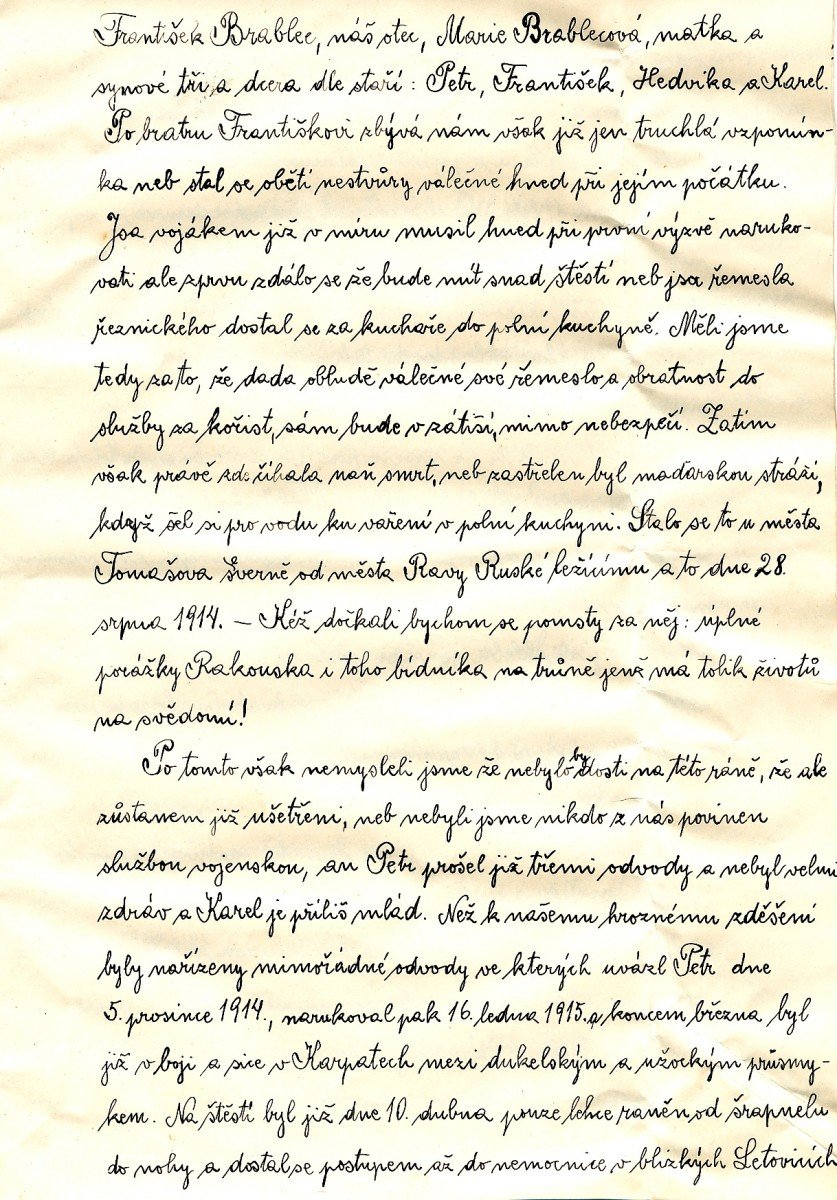 František Brablec, náš otec, Marie Brablecová, matka a
synové tři a dcera dle staří: Petr, František, Hedvika a Karel.
Po bratru Františkovi zbývá nám však již jen truchlá vzpomín-
ka neb stal se obětí nestvůry válečné hned při jejím počátku.
Jsa vojákem již v míru musil hned při první výzvě naruko-
vati ale zprvu zdálo se že bude mít snad štěstí neb jsa řemesla
řeznického dostal se za kuchaře do polní kuchyně. Měli jsme
tedy za to, že dada obludě válečné své řemeslo a obratnost do
služby za kořist, sám bude v zátiší, mimo nebezpečí. Zatím
však právě zde číhala naň smrt, neb zastřelen byl maďarskou stráží,
když šel si pro vodu ku vaření v polní kuchyni. Stalo se to u města
Tomašova šverně od města Ravy Ruské ležícímu a to dne 28.
srpna 1914. – Kéž dočkali bychom se pomsty za něj: úplné
porážky Rakouska i toho bídníka na trůně jenž má tolik životů
na svědomí!
Po tomto však nemysleli jsme že nebylo by dosti na této ráně, že ale
zůstanem již ušetřeni, neb nebyli jsme nikdo z nás povinen
službou vojenskou, an Petr prošel již třemi odvody a nebyl velmi
zdráv a Karel je příliš mlád. Než k našemu hroznému zděšení
byly nařízeny mimořádné odvody ve kterých uvázl Petr dne
5. prosince 1914., narukoval pak 16. ledna 1915. a koncem března byl
již v boji a sice v Karpatech mezi dukelským a užockým průsmy-
kem. Na štěstí byl již dne 10. dubna pouze lehce raněn od šrapnelu
do nohy a dostal se postupem až do nemocnice v blízkých Letovicích